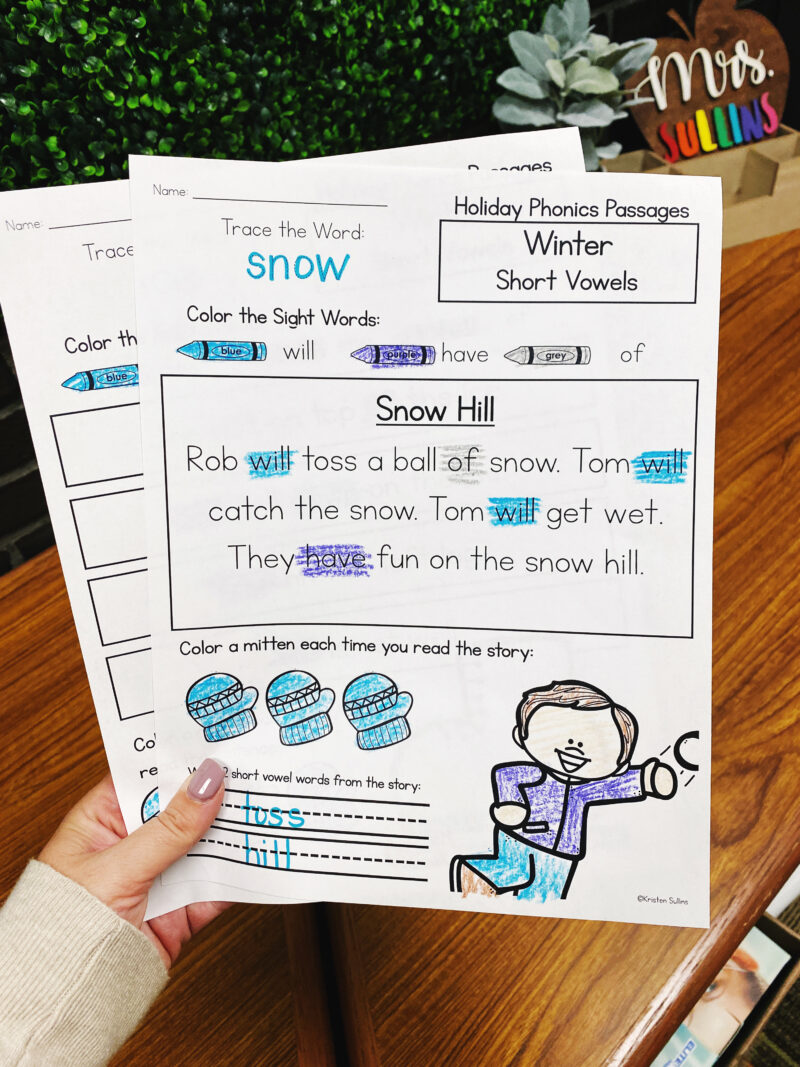 Mrs.
SULLINS
Passages
Name:
Trace
Color th
blue
Co
re
Name:
Holiday Phonics Passages
Trace the Word:
snow
Winter
Short Vowels
Color the Sight Words:
blue will purple have grey of
Snow Hill
Rob will toss a ball of snow. Tom will
catch the snow. Tom will get wet.
They have fun on the snow hill.
Color a mitten each time you read the story:
2 short vowel words from the story:
toss
hill
©Kristen Sullins